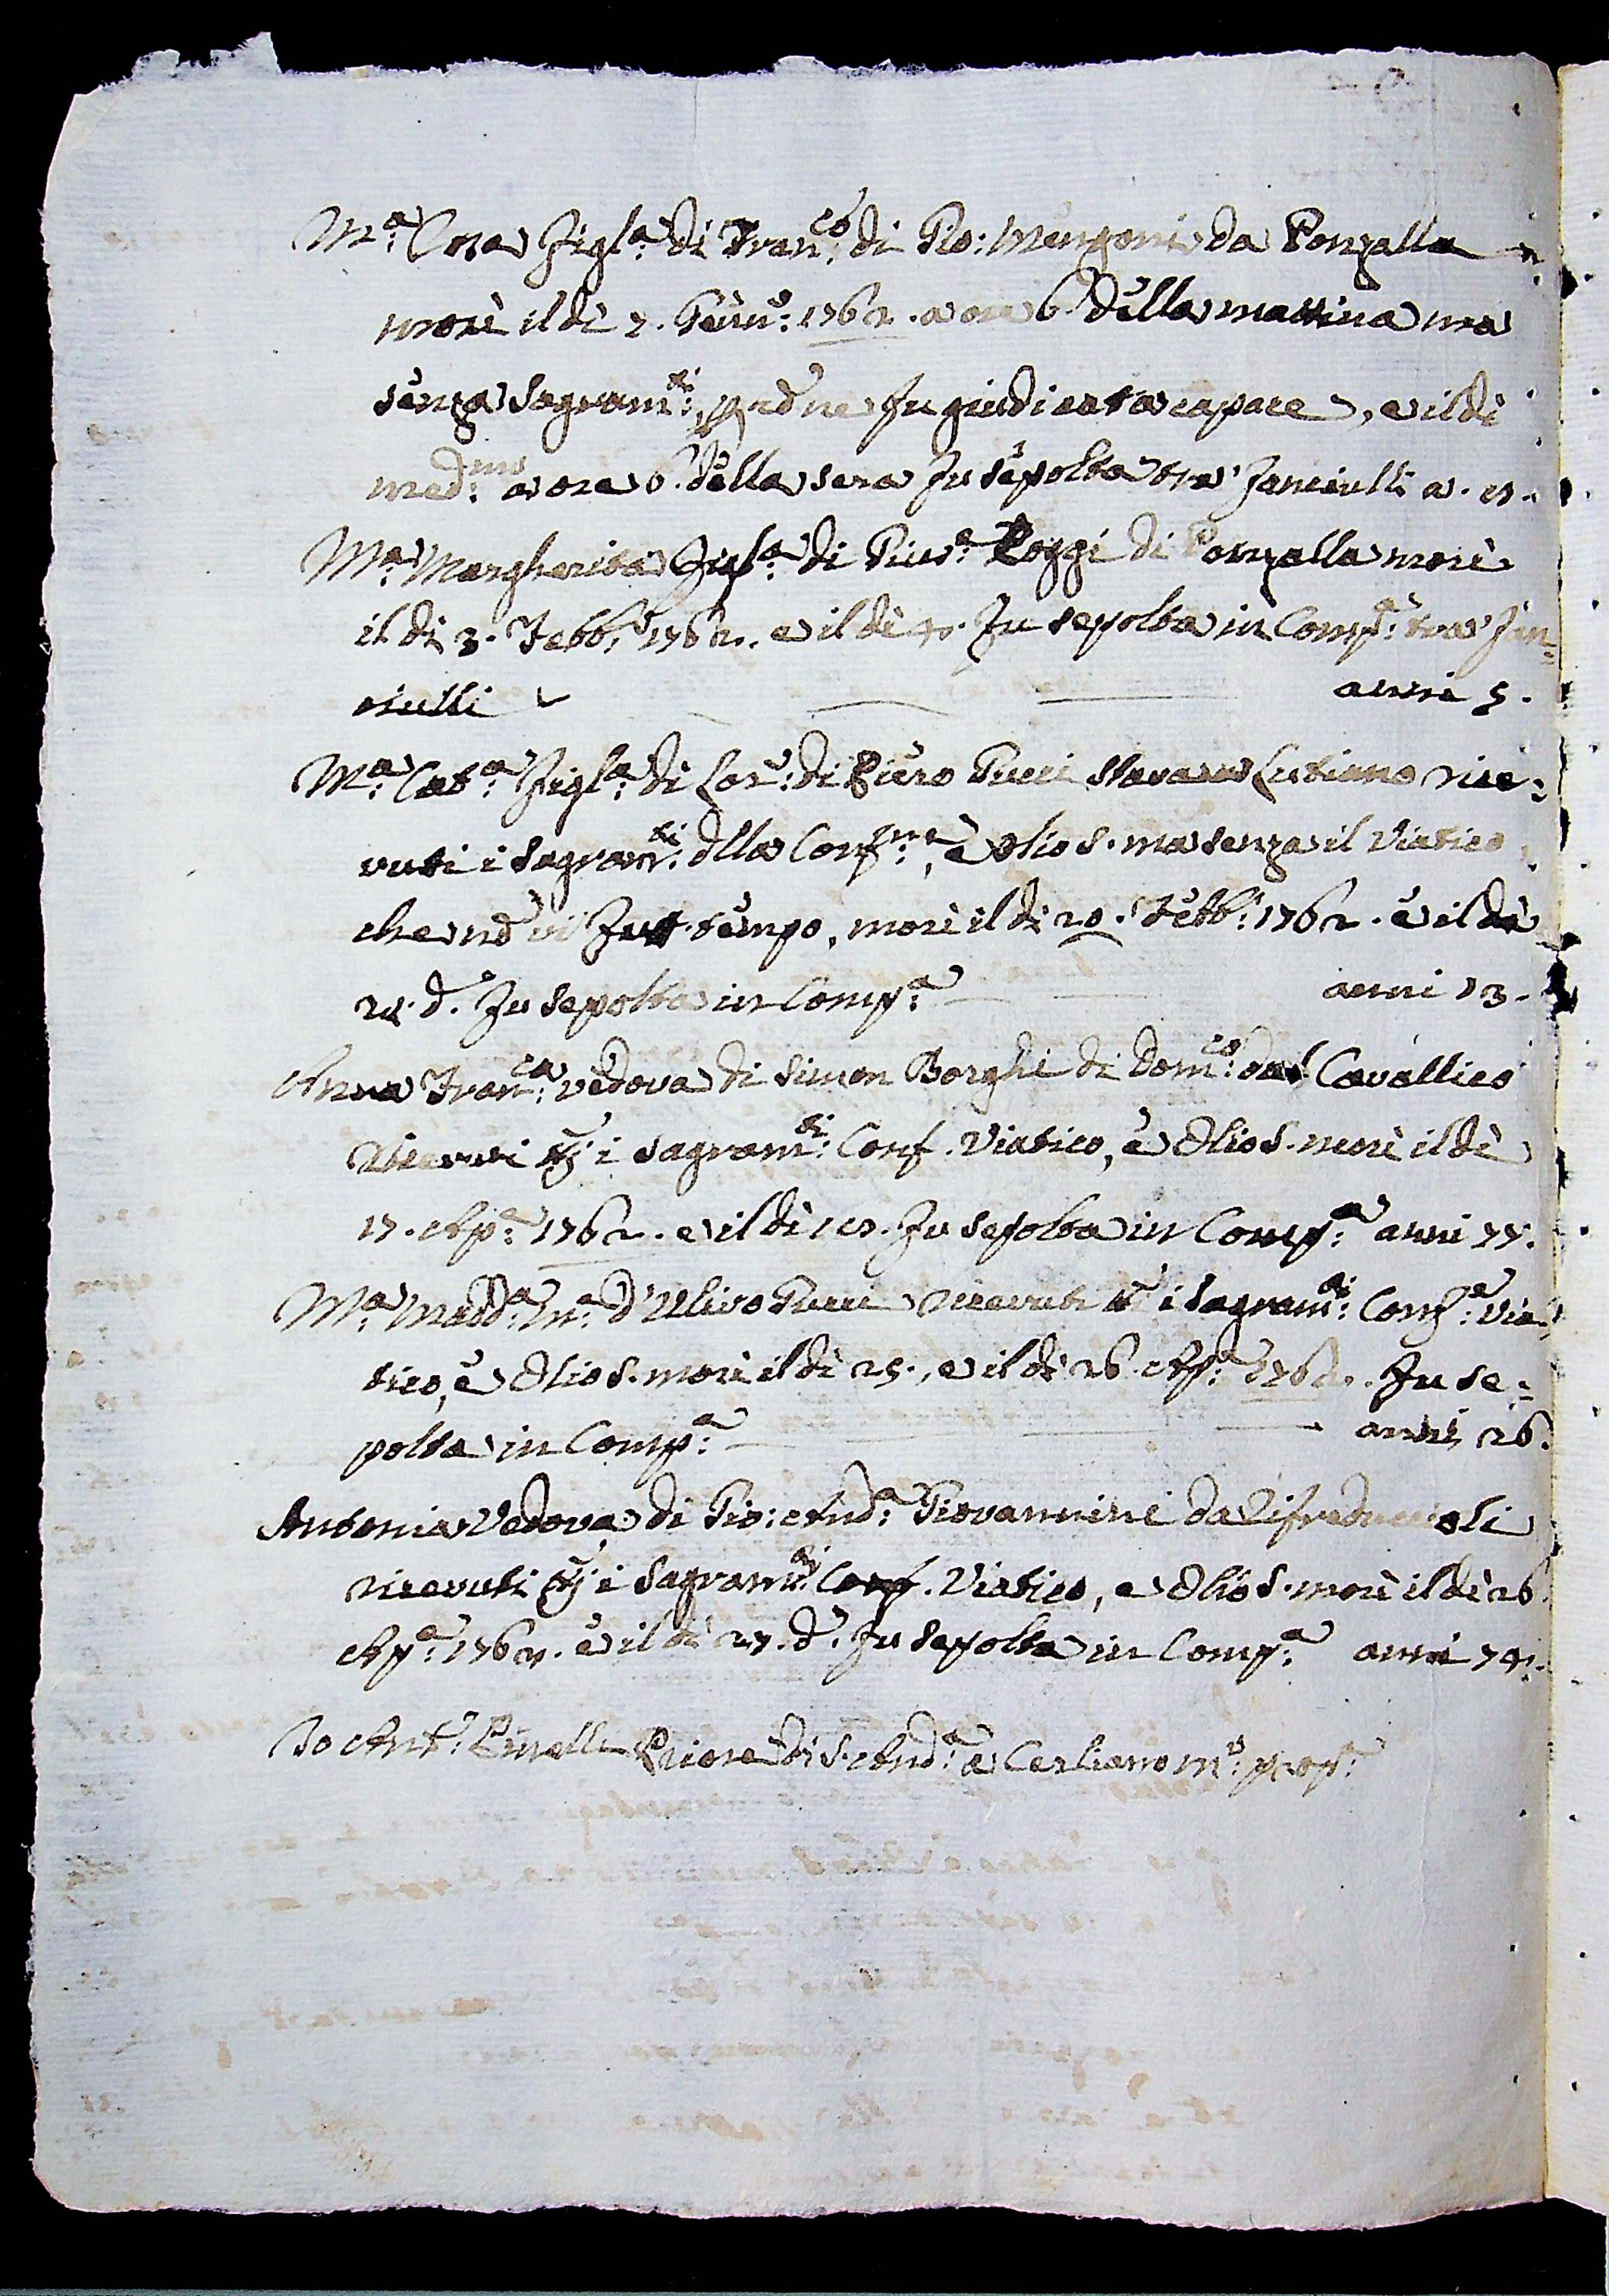 M:ª Cat.ª Figl:ª di Fran:co di Gio: Mengoni da Ponzalla
morì il dì 7. Genn:o 1762. a ore 6. della mattina ma
senza Sagram:ti, nē ne fu giudicata capace, e il dì
med:mo a ore 6. della sera fu sepolta tra' fanciulli a.
M:ª Margherita Figl:ª di Gius:e Poggi di Ponzalla morì
il dì 3. Febb:o 1762. e il dì 4. fu sepolta in Comp:ª tra' fan=
ciulli anni 5.
M:ª Cat:ª Figl:ª di Lor:o di Piero Pucci stava a Lutiano rice=
vuti i Sagram:ti dlla Conf:ne, e Olio S. ma senza il Viatico
che nō vi fu tempo, morì il dì 20. Febb:o 1762. e il dì
21. d.o fu sepolta in Comp:ª anni 13.
Anna Fran:ca vedova di Simon Borghi di Dom:co dal Cavallico
ricevuti tti i Sagram:ti Conf. Viatico, e Olio S. morì il dì
17. Ap:e 1762. e il dì fu sepolta in Comp:ª anni 77.
M:ª Madd:ª M:e d'Ulivo Pucci ricevuti tti i Sagram:ti Conf:e Via=
tico, e Olio S. morì il dì 25., e il dì 26. Ap:e 1762. fu se=
polta in Comp:ª anni 26.
Antonia Vedova di Gio: And:ª Giovannini da Rifreduccioli
ricevuti tti i Sagram:ti Conf. Viatico, e Olio S. morì il dì 26.
Ap:e 1762. e il dì 27. d.o fu sepolta in Comp:ª anni 74.
Io Ant:o Pinelli Priore di S. And:ª a Cerliano m:o prop:ª